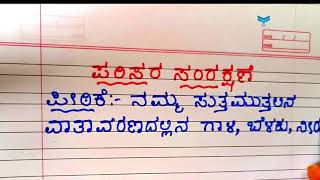 DATE
ಪರಿಸರ ಸಂರಕ್ಷಣೆ
ಪೀಠಿಕೆ:- ನಮ್ಮ ಸುತ್ತಮುತ್ತಲಿನ
ವಾತಾವರಣದಲ್ಲಿನ ಗಾಳಿ, ಬೆಳಕು, ನೀರು